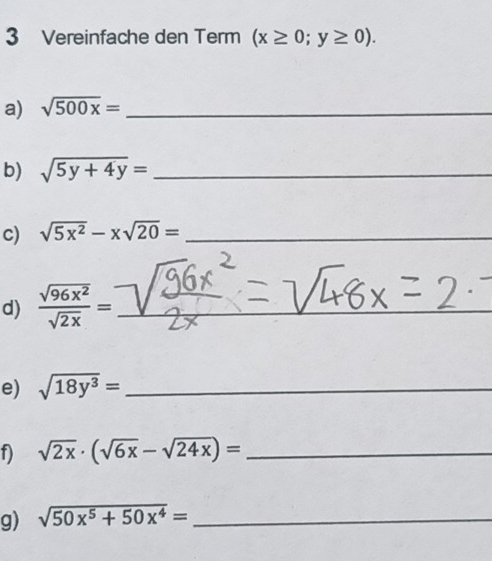 3 Vereinfache den Term (x ≥ 0; y ≥ 0).
a) √500x =
b) √5y + 4y =
c) √5x² − x√20 =
d) √96x² / √2x = √96x²/2x = √48x = 2 ·
e) √18y³ =
f) √2x · (√6x − √24x) =
g) √50x⁵ + 50x⁴ =